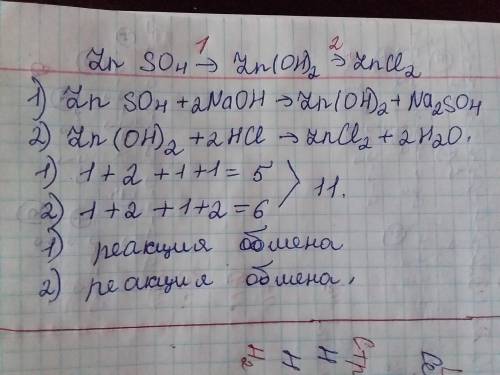 Zn SO4 →1 Zn(OH)2 →2 ZnCl2
1) Zn SO4 + 2NaOH → Zn(OH)2 + Na2SO4
2) Zn(OH)2 + 2HCl → ZnCl2 + 2H2O.
1) 1+2+1+1=5 > 11.
2) 1+2+1+2=6
1) реакция обмена
2) реакция обмена.
H2
H
H
Стр